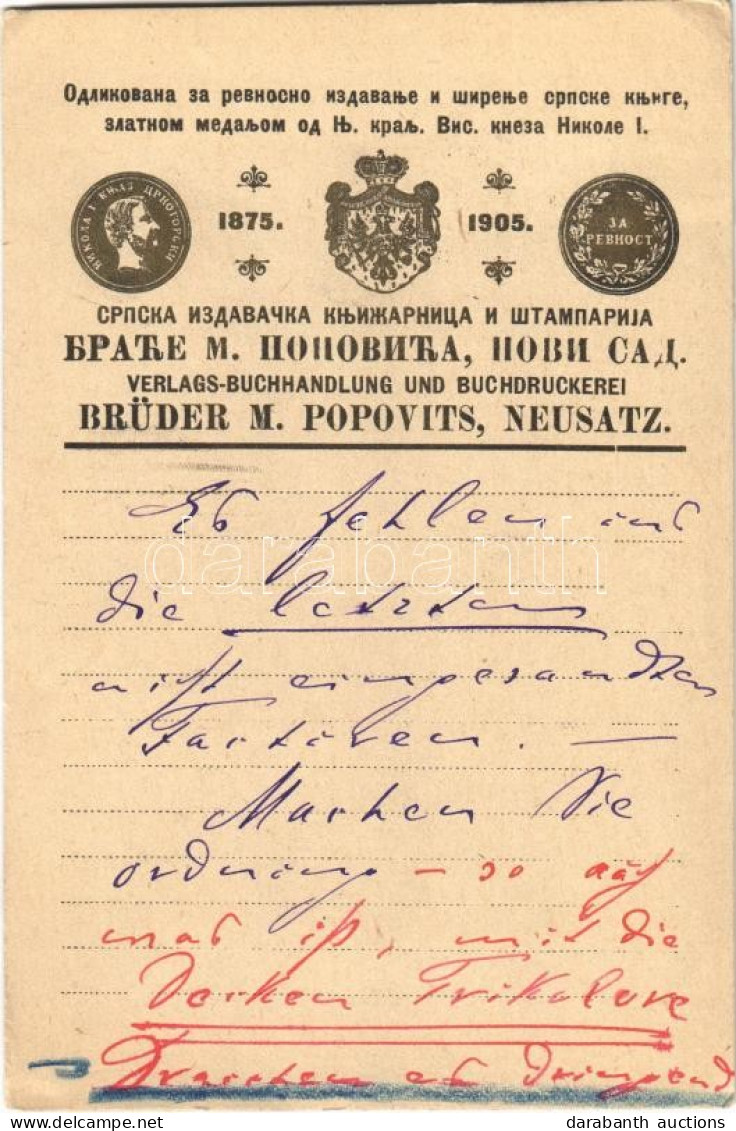 Одликована за ревносно издавање и ширење српске књиге,
златном медаљом од Њ. краљ. Вис. кнеза Николе I.
НИКОЛА I КЊАЗ ЦРНОГОРСКИ
1875.
1905.
ЗА
РЕВНОСТ
СРПСКА ИЗДАВАЧКА КЊИЖАРНИЦА И ШТАМПАРИЈА
БРАЋЕ М. ПОПОВИЋА, НОВИ САД.
VERLAGS-BUCHHANDLUNG UND BUCHDRUCKEREI
BRÜDER M. POPOVITS, NEUSATZ.
Es fehlen uns
die letzten
nicht eingesandten
Facturen. —
Machen Sie
ordnung – so auch
was ist, mit die
Decken Trikolore
Brauchen es dringend
darabanth
darabanth auctions